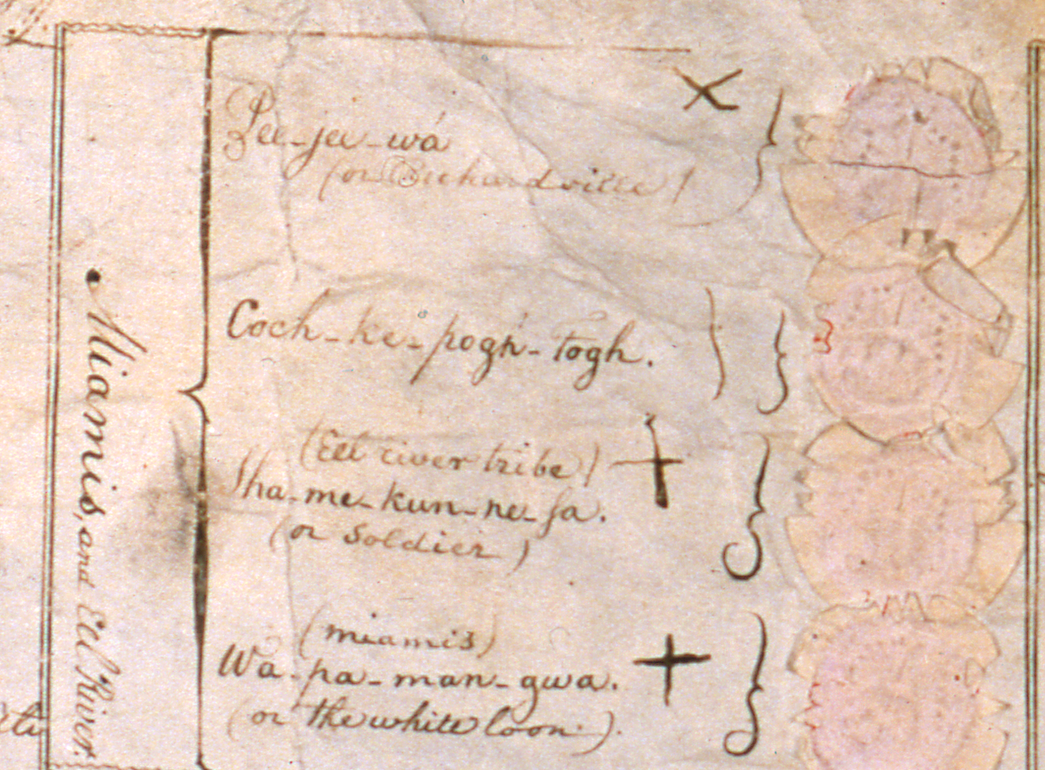 Miamis, and Eel River.
Pee-jee-wá
(or Richardville)
Coch-ke-pogh-togh.
(Eel river tribe)
Sha-me-kun-ne-sa.
(or Soldier)
(miamis)
Wa-pa-man-gwa.
(or the white loon.)